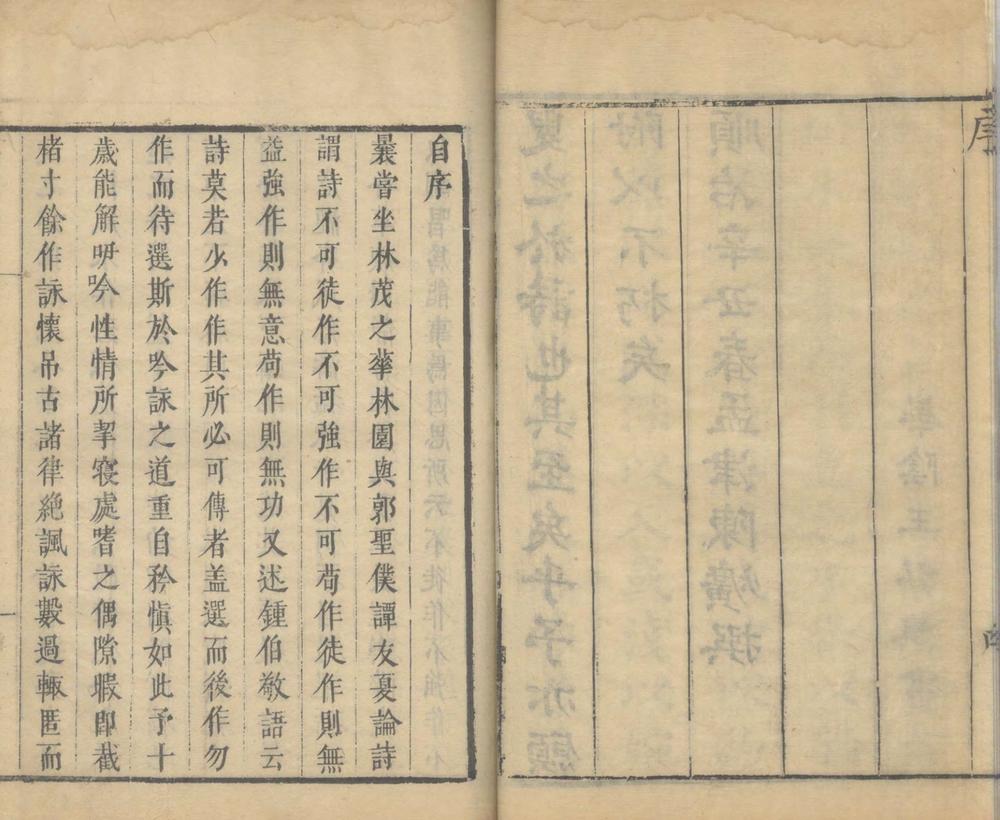 序
自序
曩嘗坐林茂之華林園與郭聖僕譚友夏論詩
謂詩不可徒作不可強作不可苟作徒作則無
益強作則無意苟作則無功又述鍾伯敬語云
詩莫若少作作其所必可傳者盖選而後作勿
作而待選斯於吟詠之道重自矜慎如此予十
歲能解吚吟性情所挈寝處嗜之偶隙暇即截
楮寸餘作詠懷吊古諸律絶諷詠數過輙匿而